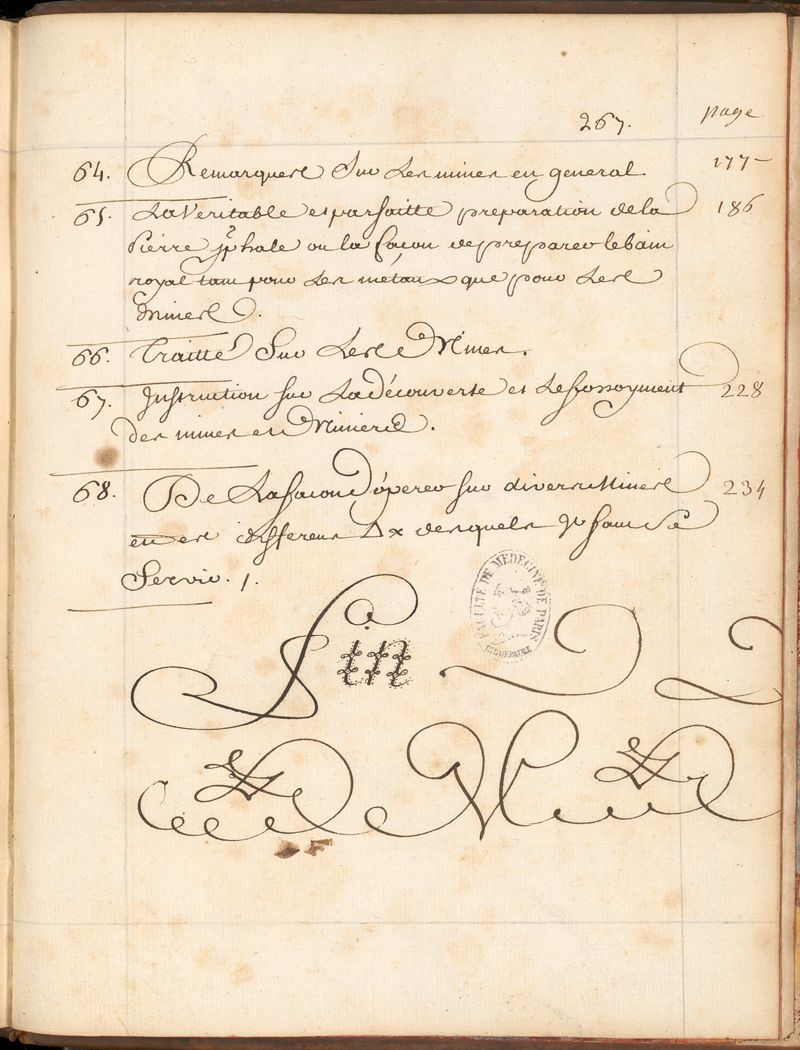 267. page
64. Remarques Sur Les mines en general 177
65. La Veritable et parfaitte preparation de la 186
Pierre phale ou la façon de preparer le bain
royal tant pour Les metaux que pour Les
Mines.
66. Traitté Sur Les Mines.
67. Instruction sur La découverte et Les 228
des mines et Minieres.
68. De La façon d'óperer sur divers Mines 234
et differens desquels Il faut Se
Servir. /.
Fin
FACULTE DE MEDECINE DE PARIS